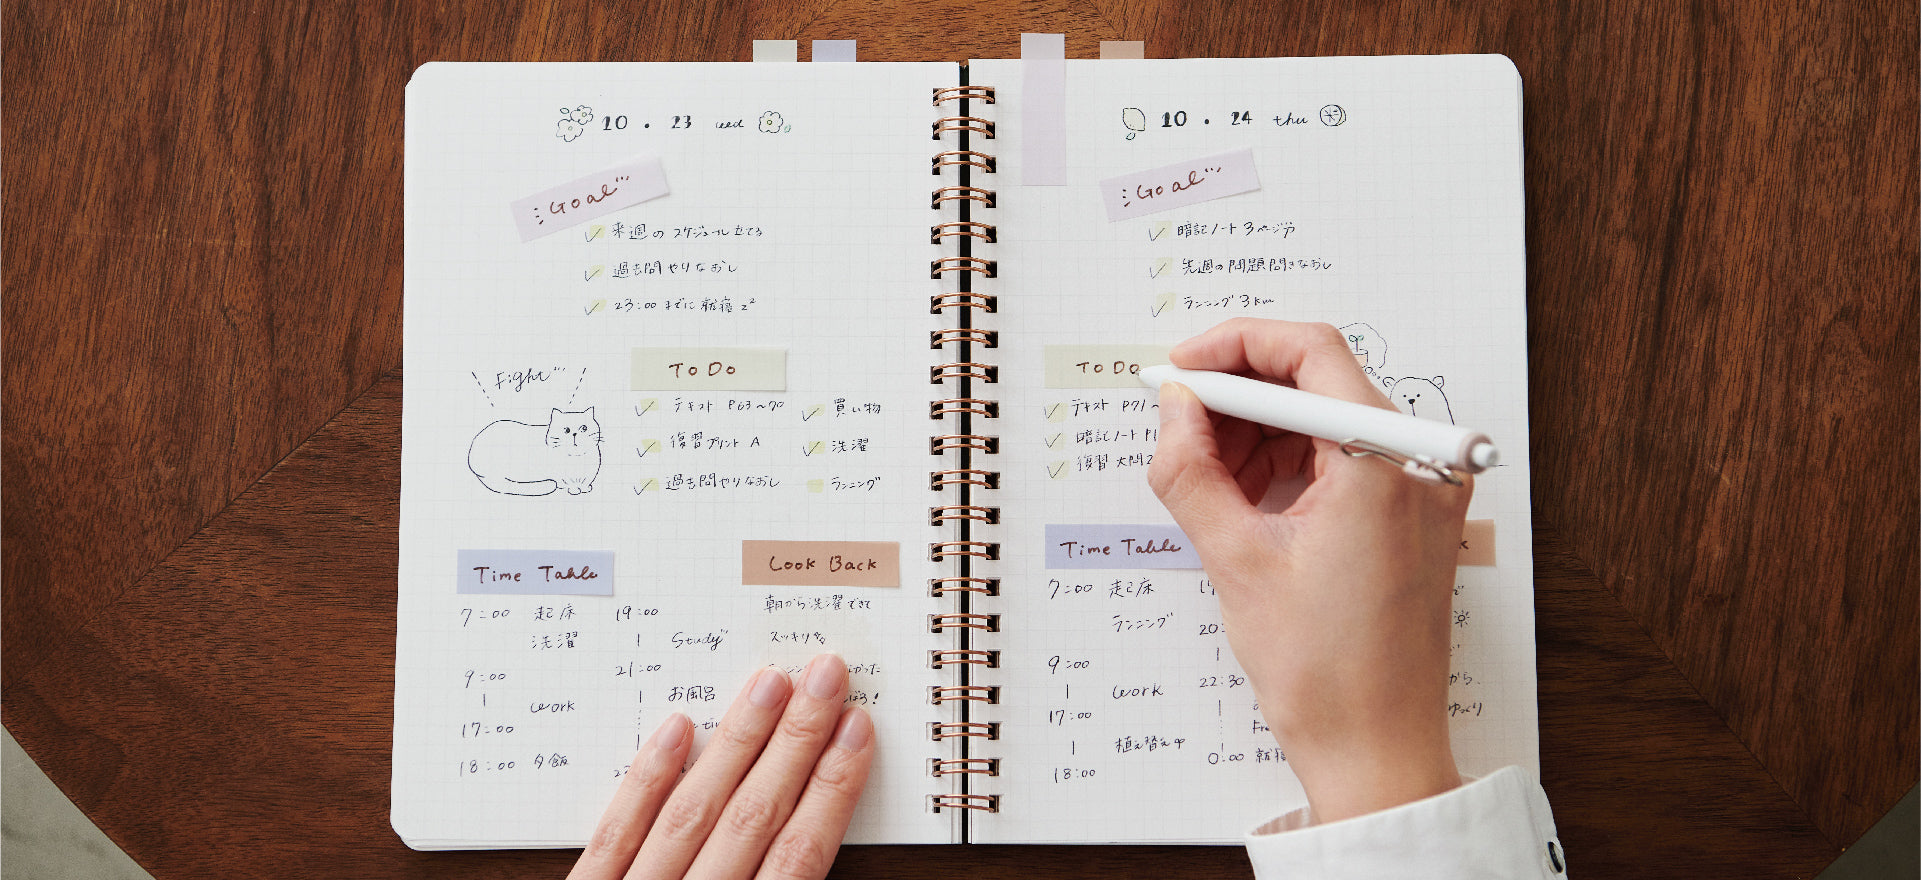 10 . 23 wed
Goal
来週の スケジュール立てる
過去問やりなおし
23:00 までに就寝 zz
Fight
To Do
テキスト P63~70
復習プリント A
過去問やりなおし
買い物
洗濯
ランニング
Time Table
7:00 起床
洗濯
9:00
work
17:00
18:00 夕飯
19:00
Study
21:00
お風呂
Look Back
朝から洗濯できて
スッキリ
かった
10 . 24 thu
Goal
暗記ノート 3ページ分
先週の問題問きなおし
ランニング 3km
To Do
テキスト P71~
暗記ノート P1
復習 大問2
Time Table
7:00 起床
ランニング
9:00
work
17:00
植え替え
18:00
20:
22:30
0:00 就寝
から、
ゆっくり